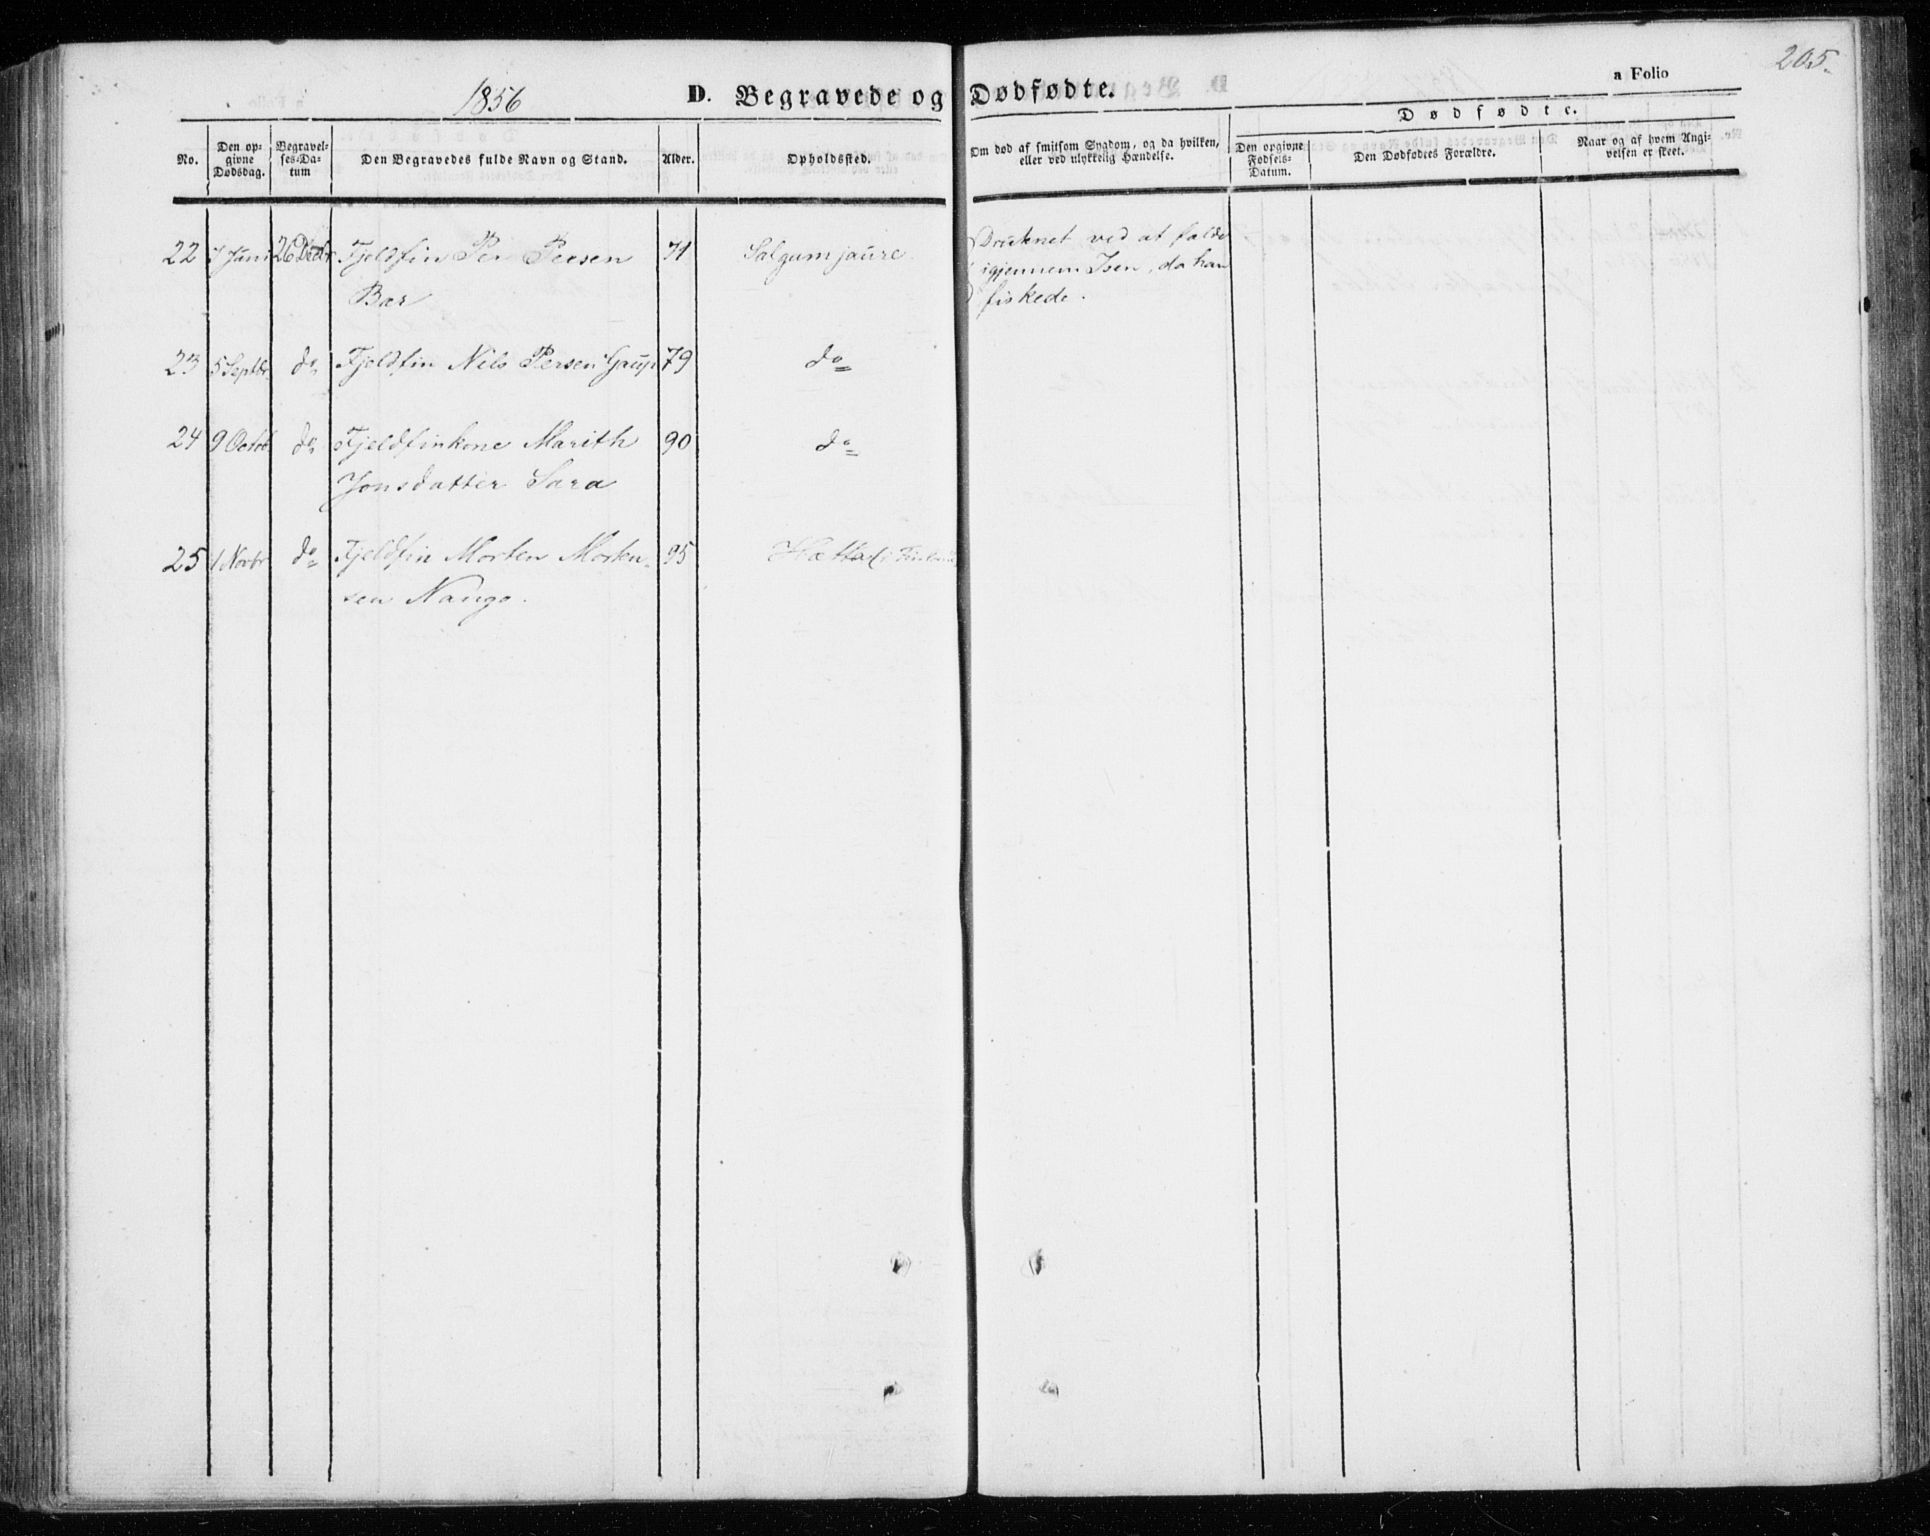 205.
1856 D. Begravede og Dødfødte. a Folio
No. Den opgivne Dødsdag. Begravelses-Datum Den Begravedes fulde Navn og Stand. Alder. Opholdssted. Om død af smitsom Sygdom, og da hvilken, eller ved ulykkelig Hændelse. Dødfødte. Den opgivne Fødsels-Datum. Den Dødfødtes Forældre. Naar og af hvem Angivelsen er skeet.
22 7 Juni 26 Decbr Fjeldfin Per Persen 71 Salgumjaure. Druknet ved at falde
Bær igjennem Isen, da han
fiskede.
23 5 Septbr. do Fjeldfin Nils Persen Gaup 79 do
24 9 Octob do Fjeldfinkone Marith 90 do
Jonsdatter Sara
25 1 Novbr do Fjeldfin Morten Morten- 95 Hætta i
sen Nango.